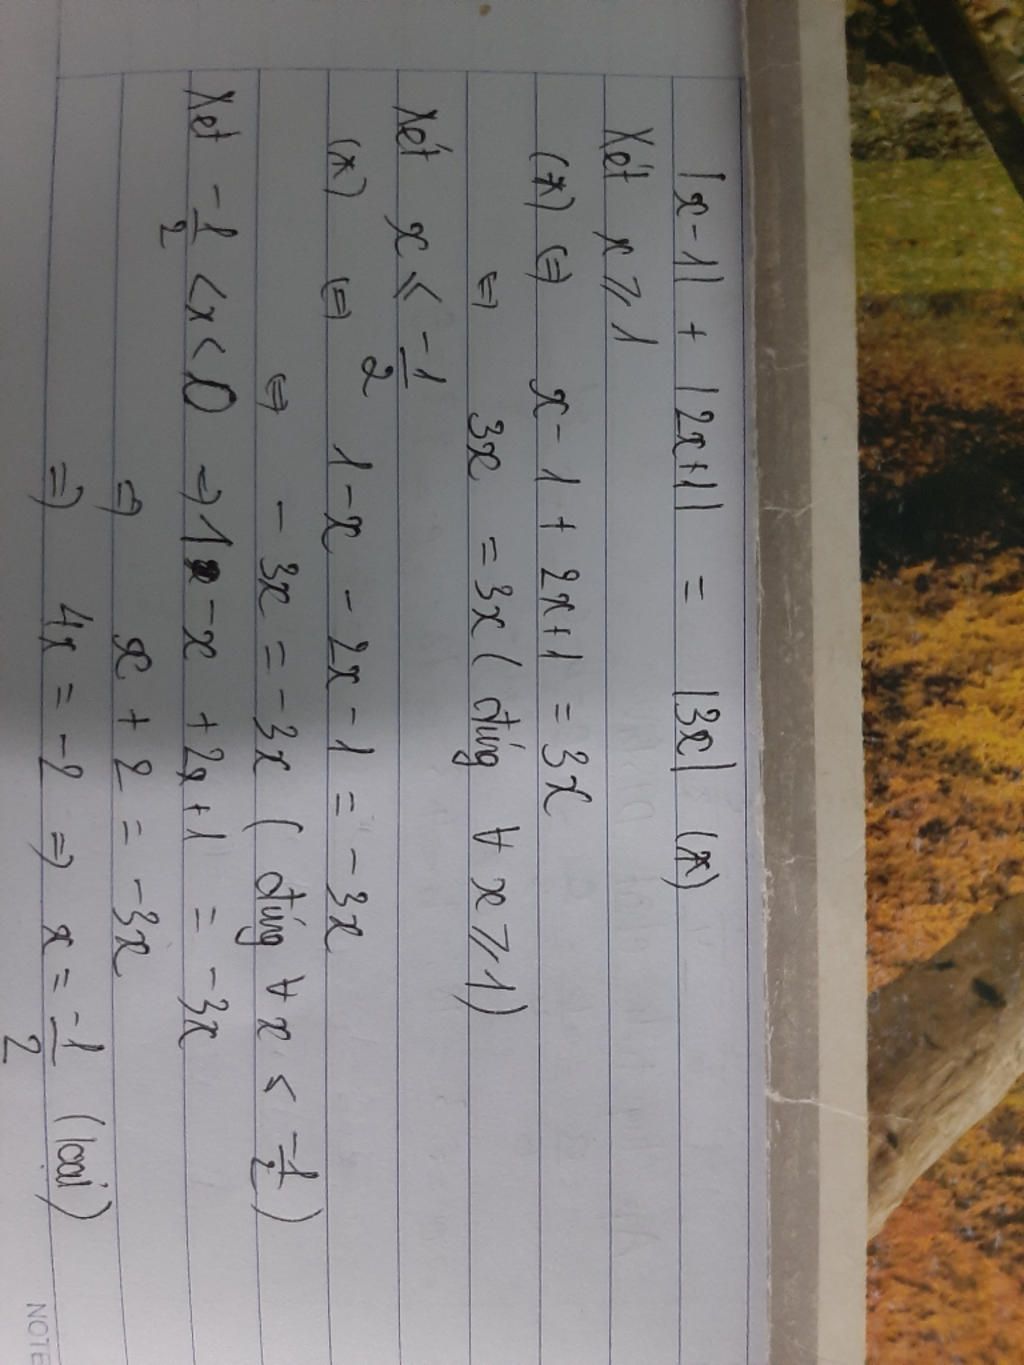 |x-1| + |2x+1| = |3x| (*)
Xét x ⩾ 1
(*) ⇔ x - 1 + 2x+1 = 3x
⇔ 3x = 3x ( đúng ∀ x ⩾ 1)
Xét x ⩽ -1/2
(*) ⇔ 1-x - 2x - 1 = -3x
⇔ - 3x = -3x ( đúng ∀ x < -1/2 )
Xét -1/2 < x < 0 ⇒ 1 - x + 2x + 1 = -3x
⇒ x + 2 = -3x
⇒ 4x = -2 ⇒ x = -1/2 (loại)
NOTE